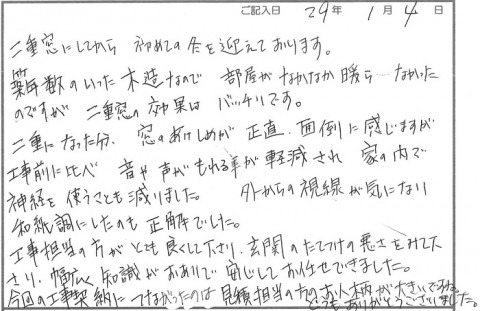 ご記入日 29年 1月 4日
二重窓にしてから 初めての冬を迎えております。
築年数のいった木造なので 部屋がなかなか暖ら なかった
のですが 二重窓の効果は バッチリです。
二重になった分、窓のあけしめが 正直、面倒に感じますが
工事前に比べ 音や声がもれる事が軽減され 家の内で
神経を使うことも減りました。 外からの視線が気になり
和紙調にしたのも正解でした。
工事担当の方が とても良くして下さり、玄関のたてつけの悪さをみて下
さり、幅広く知識がおありで 安心してお任せできました。
今回の工事契約につながったのは 見積担当の方のお人柄が大きいですね。
どうもありがとうございました。